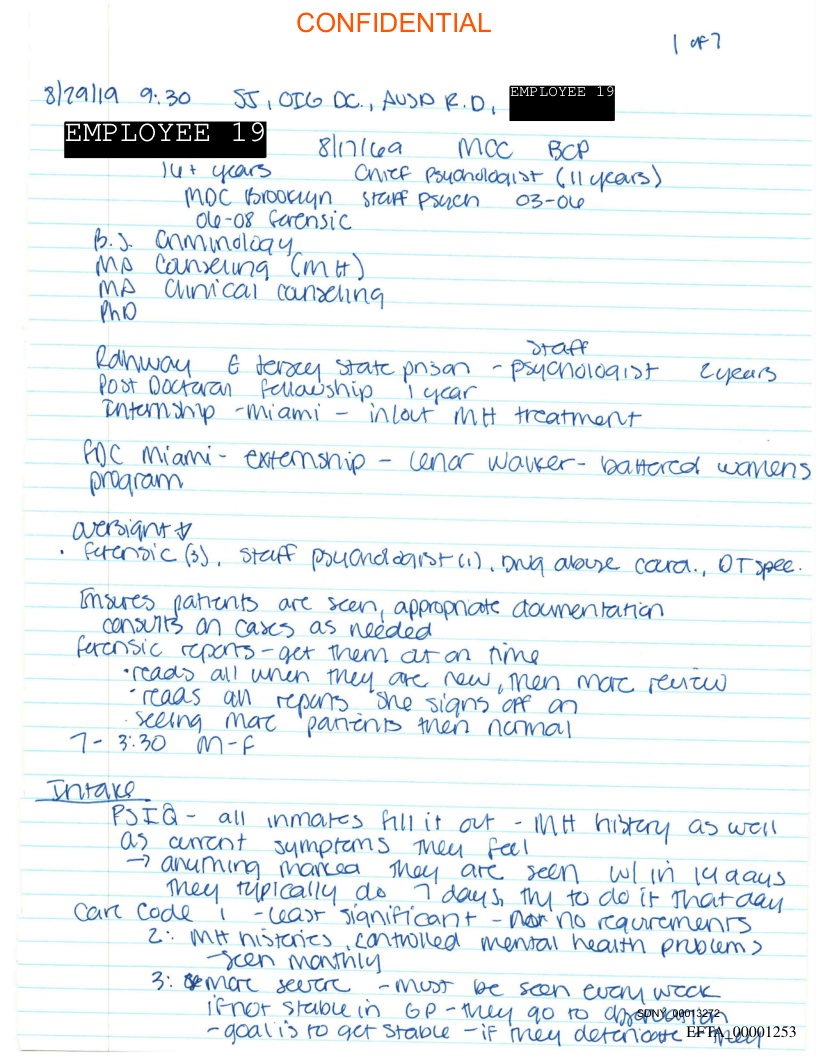 CONFIDENTIAL
1 of 7
8/29/19 9:30 SJ, OIG DC., AUSA R.D,
EMPLOYEE 19
EMPLOYEE 19
8/17/69 MCC BCP
16+ years Chief Psychologist (11 years)
MDC Brooklyn staff psych 03-06
06-08 forensic
B.S. Criminology
MA Counseling (MH)
MA Clinical counseling
PhD
staff
Rahway E Jersey state prison - psychologist 2 years
Post Doctoral fellowship 1 year
Internship - Miami - in/out MH treatment
FDC Miami - externship - Lenor Walker - battered womens
program
oversight
• forensic (3), staff psychologist (1), Drug abuse coord., DT spec.
Ensures patients are seen, appropriate documentation
consults on cases as needed
forensic reports - get them out on time
• reads all when they are new, then more review
• reads all reports she signs off on
• seeing more patients then normal
7 - 3:30 M-F
Intake
PSIQ - all inmates fill it out - MH history as well
as current symptoms they feel
→ anything marked they are seen w/in 14 days
they typically do 7 days, try to do it that day
Care Code 1 - least significant - no requirements
2: MH histories, controlled mental health problems
- seen monthly
3: more severe - must be seen every week
if not stable in GP - they go to
- goal is to get stable - if they deteriorate they
SDNY_00013272
EFTA_00001253